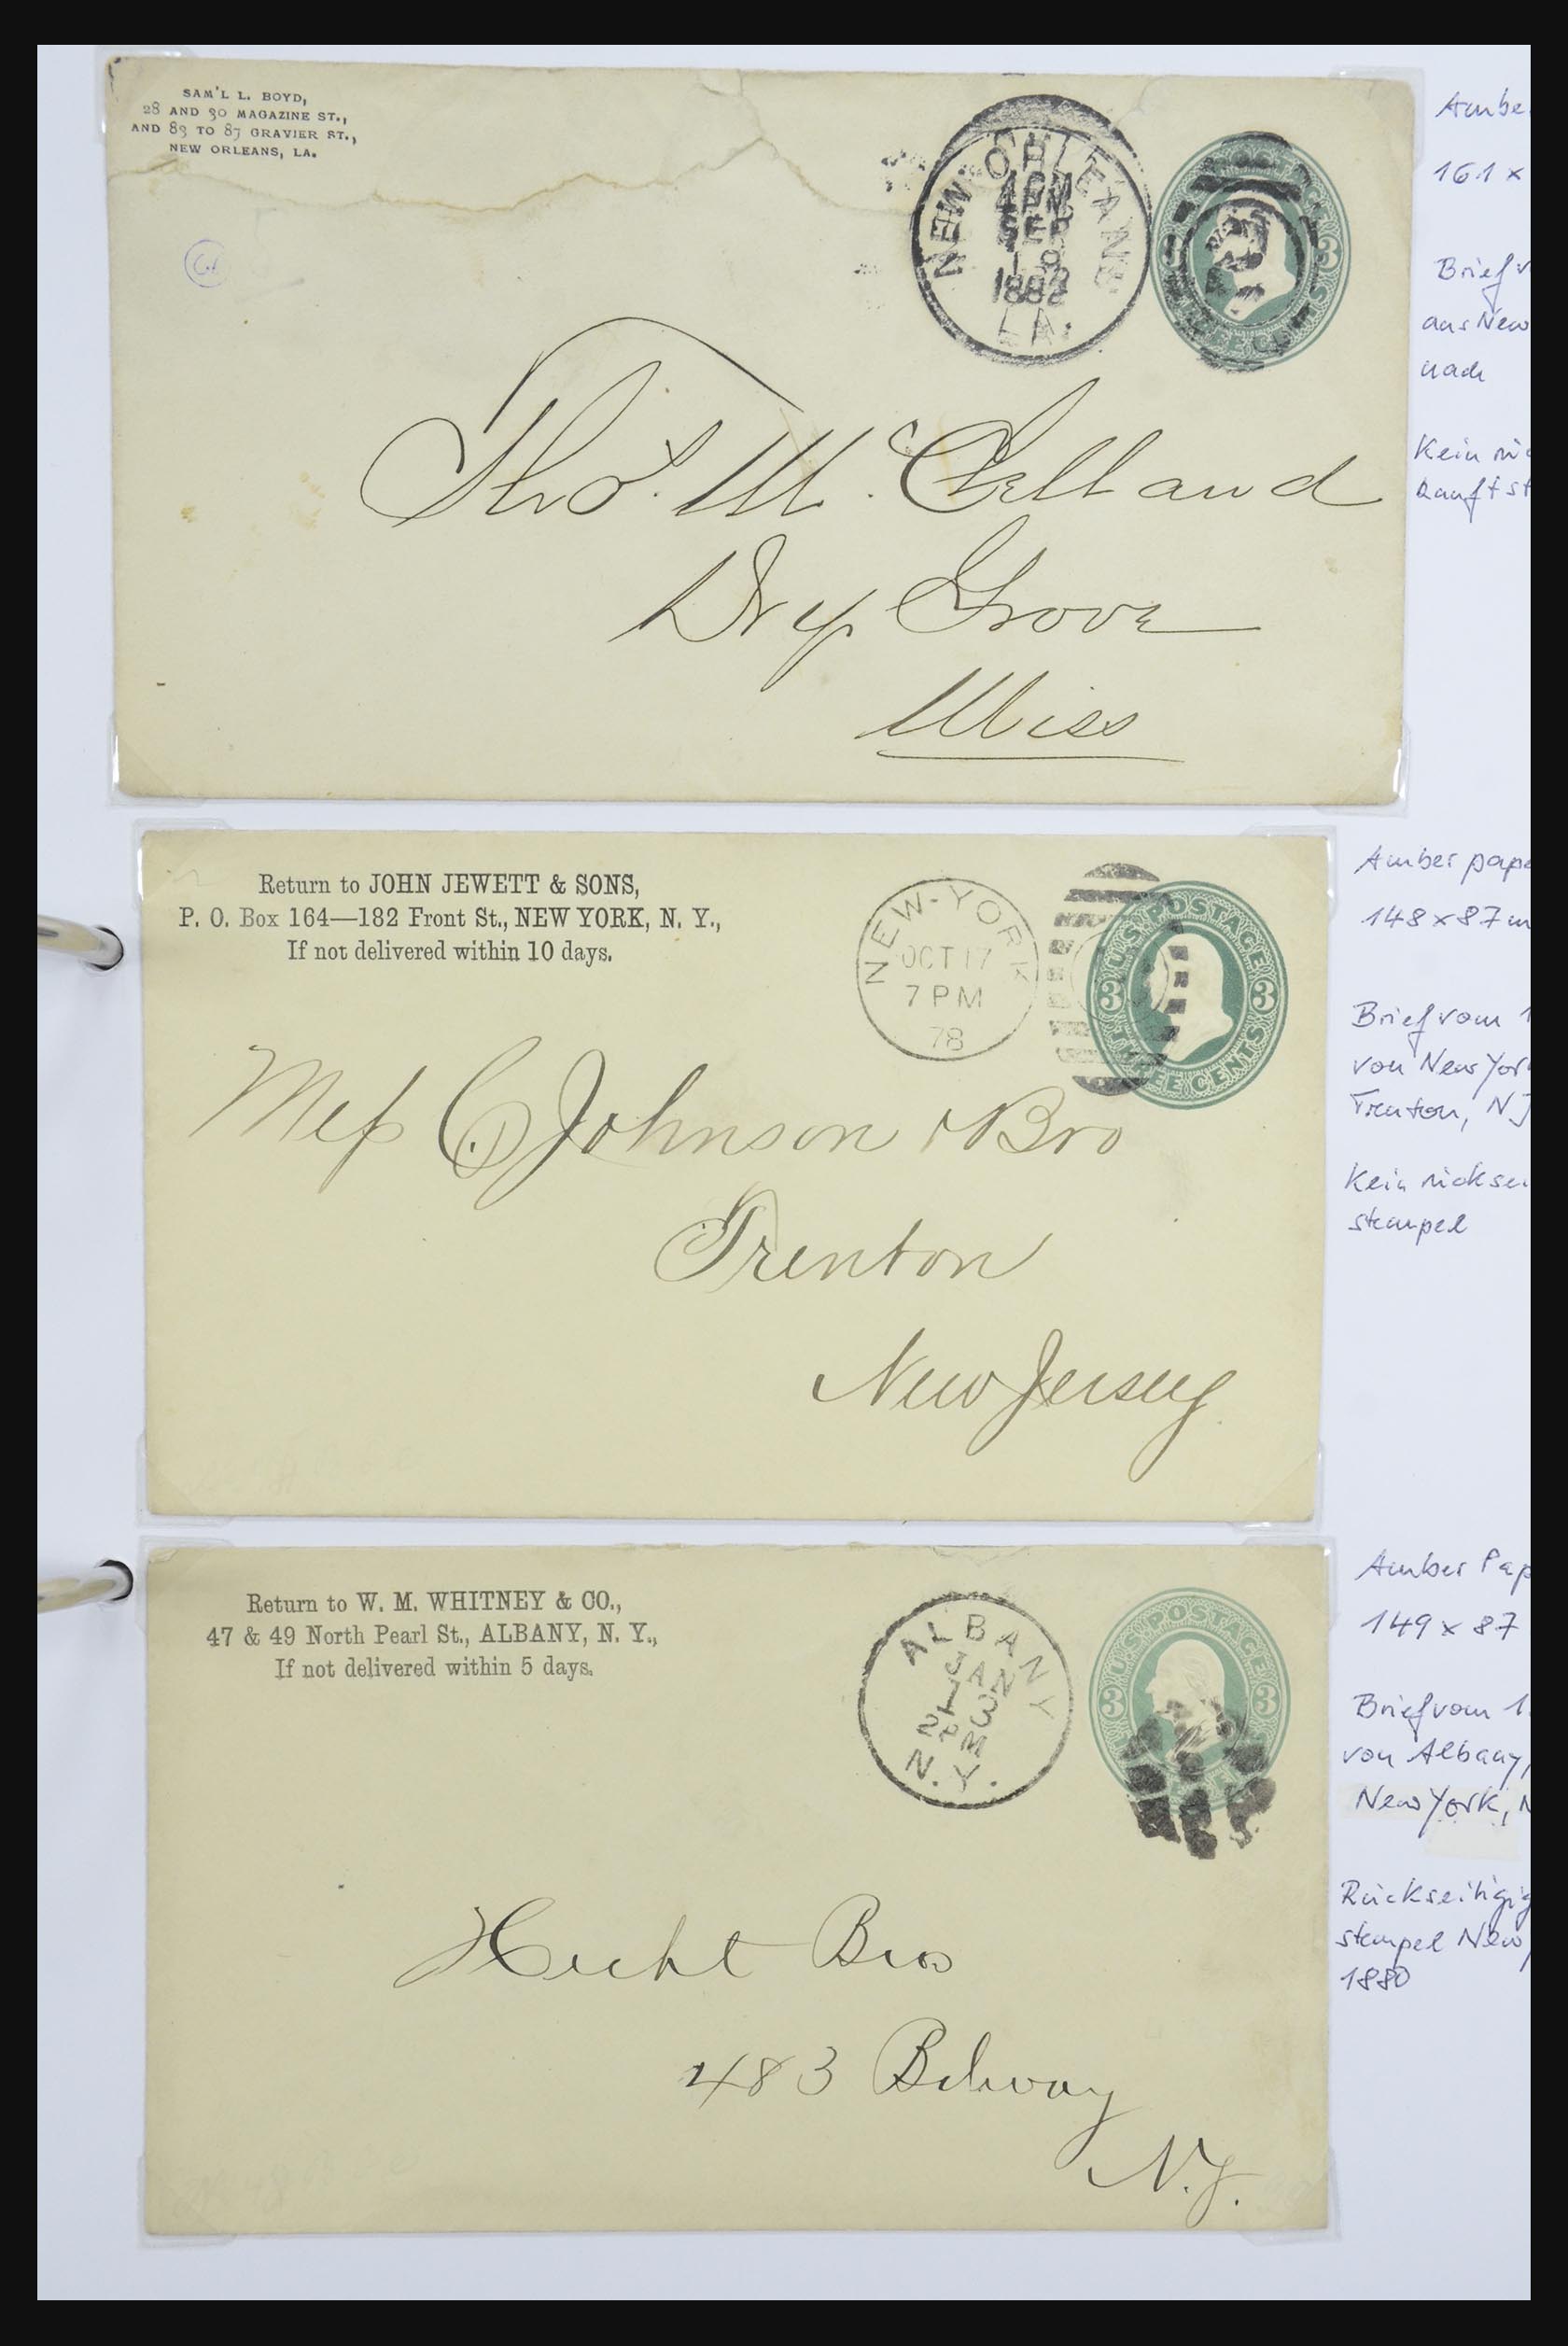 SAM'L L. BOYD,
28 AND 30 MAGAZINE ST.,
AND 83 TO 87 GRAVIER ST.,
NEW ORLEANS, LA.
NEW ORLEANS
4 PM
SEP
19
1882
LA.
3
Thos. McClelland
Dry Grove
Miss
161 x
Brief v
aus New
nach
Kein
Return to JOHN JEWETT & SONS,
P. O. Box 164—182 Front St., NEW YORK, N. Y.,
If not delivered within 10 days.
NEW-YORK
OCT 17
7 PM
78
U.S. POSTAGE
3 3
THREE CENTS
Mess C Johnson & Bro
Trenton
New Jersey
Amber pape
148 x 87 m
Brief vom 1
von New Yor
Trenton, NJ
Kein rücksei
stempel
Return to W. M. WHITNEY & CO.,
47 & 49 North Pearl St., ALBANY, N. Y.,
If not delivered within 5 days.
ALBANY
JAN
13
2 PM
N.Y.
U.S. POSTAGE
3 3
Hecht Bros
483 Bdway
N.Y.
Amber Pap
149 x 87
Brief vom 1.
von Albany,
New York, N
Rückseitig
stempel New
1880